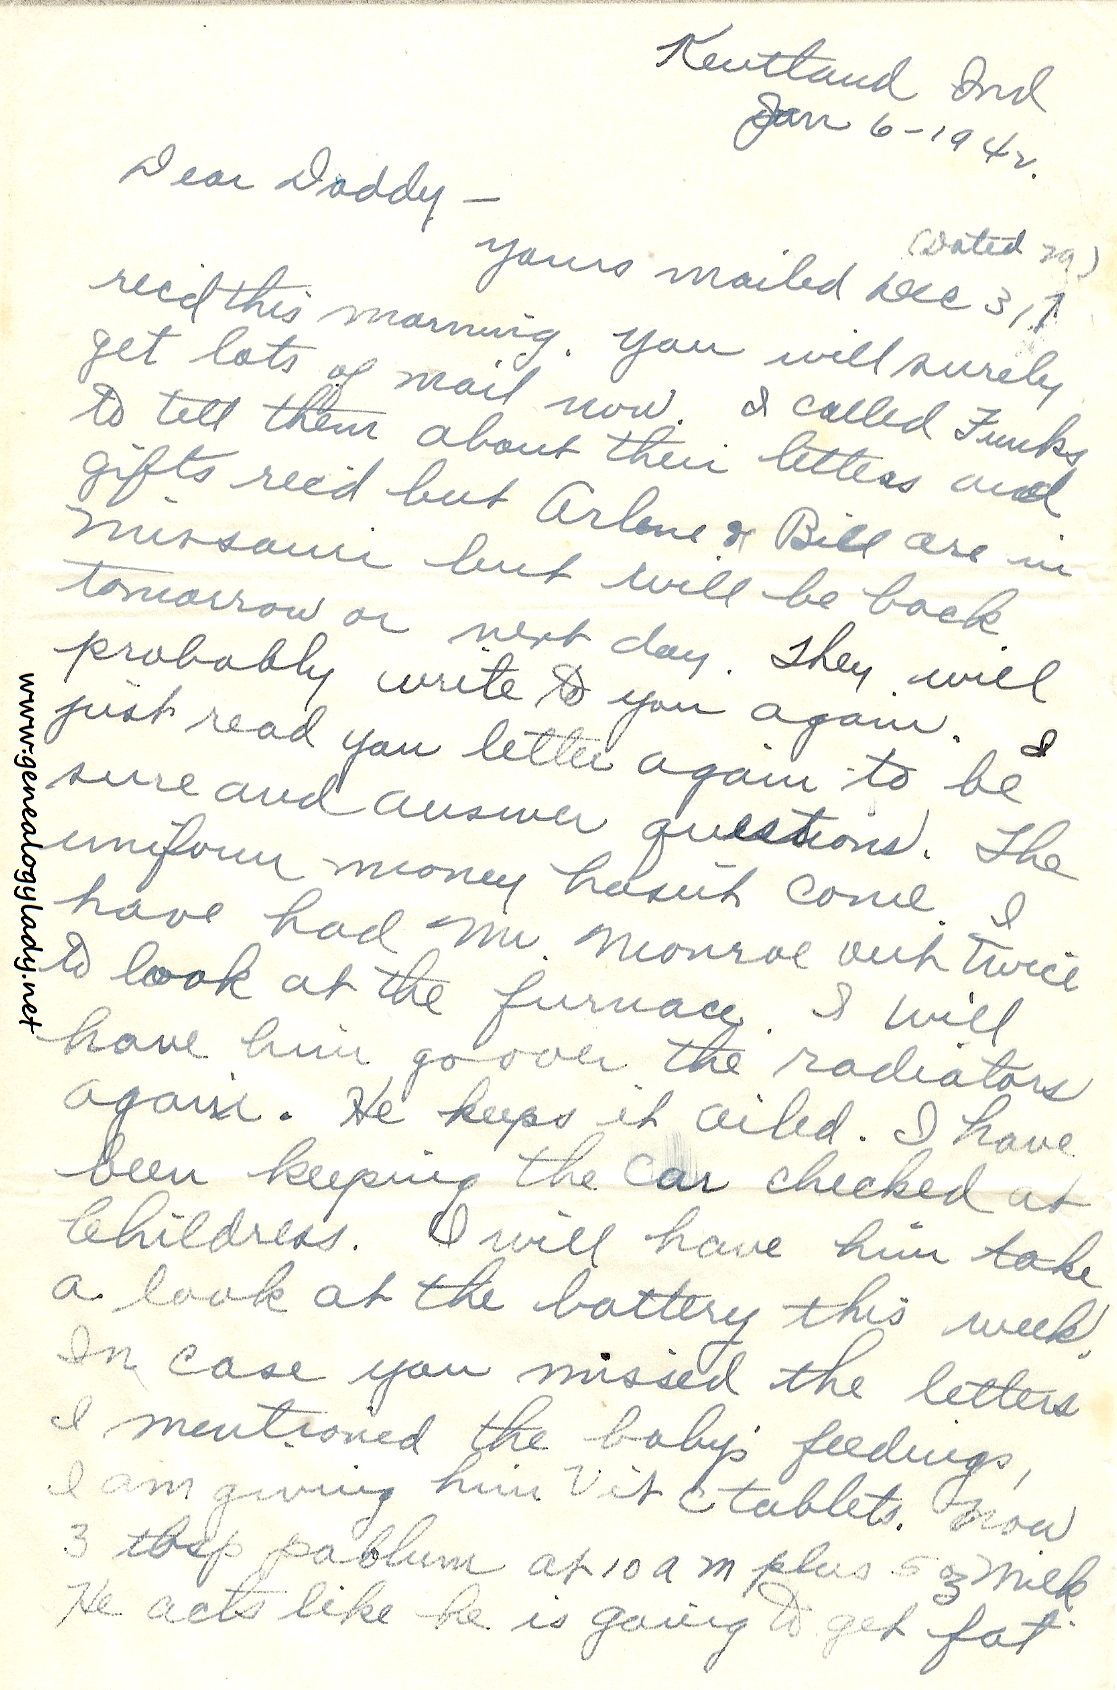 Kentland Ind
Jan 6-1942.
Dear Daddy –
(Dated 29)
yours mailed Dec 31,
rec'd this morning. You will surely
get lots of mail now. I called Funks
to tell them about their letters and
gifts rec'd but Arlene & Bill are in
Missouri but will be back
tomorrow or next day. They will
probably write to you again. I
just read you letter again to be
sure and answer questions. The
uniform money hasn't come. I
have had Mr. Monroe out twice
to look at the furnace. I will
have him go over the radiators
again. He keeps it oiled. I have
been keeping the car checked at
Childress. I will have him take
a look at the battery this week.
In case you missed the letters
I mentioned the baby's feedings,
I am giving him Vit C tablets. Now
3 tbsp pablum at 10 a m plus 5 oz milk.
He acts like he is going to get fat.
www.genealogylady.net